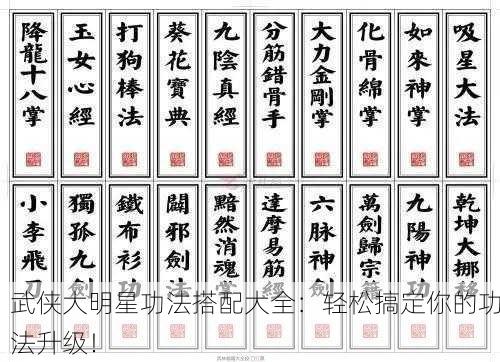 吸星大法
如來神掌
化骨綿掌
大力金剛掌
分筋錯骨手
九陰真經
葵花寶典
打狗棒法
玉女心經
降龍十八掌
乾坤大挪移
九陽神功
萬劍歸宗
六脈神劍
達摩易筋經
黯然消魂掌
闢邪劍法
鐵布衫功
獨孤九劍
小李飛刀
武侠大明星功法搭配大全：轻松搞定你的功
法升级！